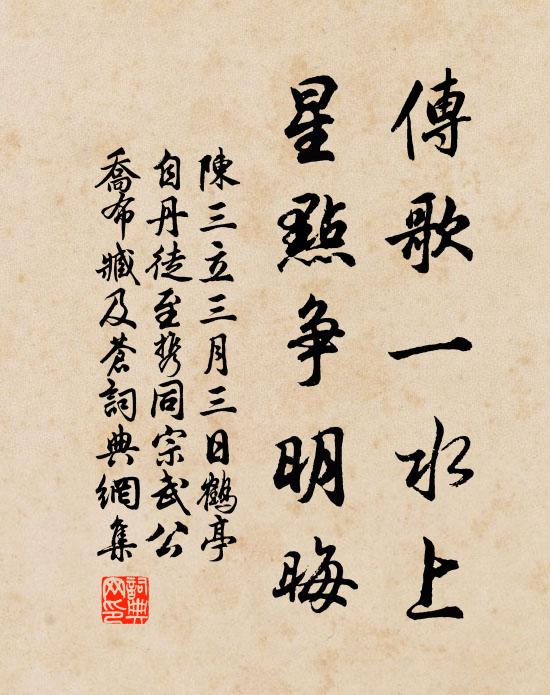 傳歌一水上
星點争明晦
陳三立三月三日鶴亭
自丹徒至㩗同宗武公
喬布臧及蒼詞典網集
詞典網印